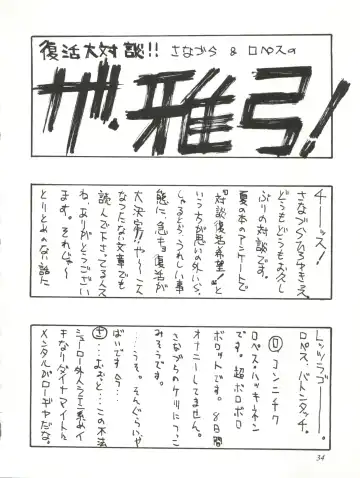 復活大対談!! さなづら & ロペスの
ザ・雅弓!
チーッス!
さなづらひろゆきさえ。
どうもどうもお久し
ぶりの対談です。
夏の本のアンケートで
“対談復活希望!”と
いううちが思いの外いら
っしゃるとゆううれしい事
態に、急キョ復活が
大決定!! や〜こえ
なつたない文章でも
読んで下さってる人ス
ね、ありがとうござい
ます。それじゃ〜
とりとめのない話に
レッツラゴー。
ロペス、バトンタッチ。
ロ コンニチク
ロペス・ハッキネネン
です。超ボロボロ
ボロットです。8日間
オナニーしてません。
さなづらのケツにつっこ
みそうです。
…うそ。そんぐらいや
ばいです今…
さ …むおっと…この不法
ニューロー外人ラ王系めイ
キなりダイナマイトに
メンタルがローギヤだな。
34